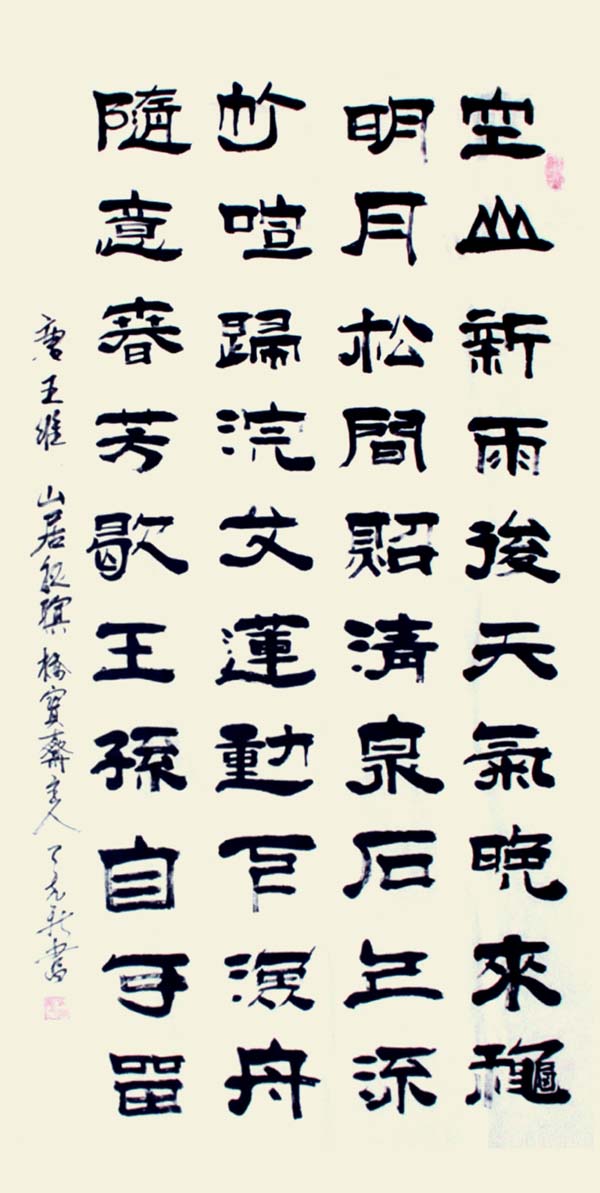 空山新雨後天氣晚來龝
明月松間照清泉石上流
竹喧歸浣女蓮動下漁舟
隨意春芳歇王孫自可留
唐王維 山居秋暝 橋寶齋主人 書